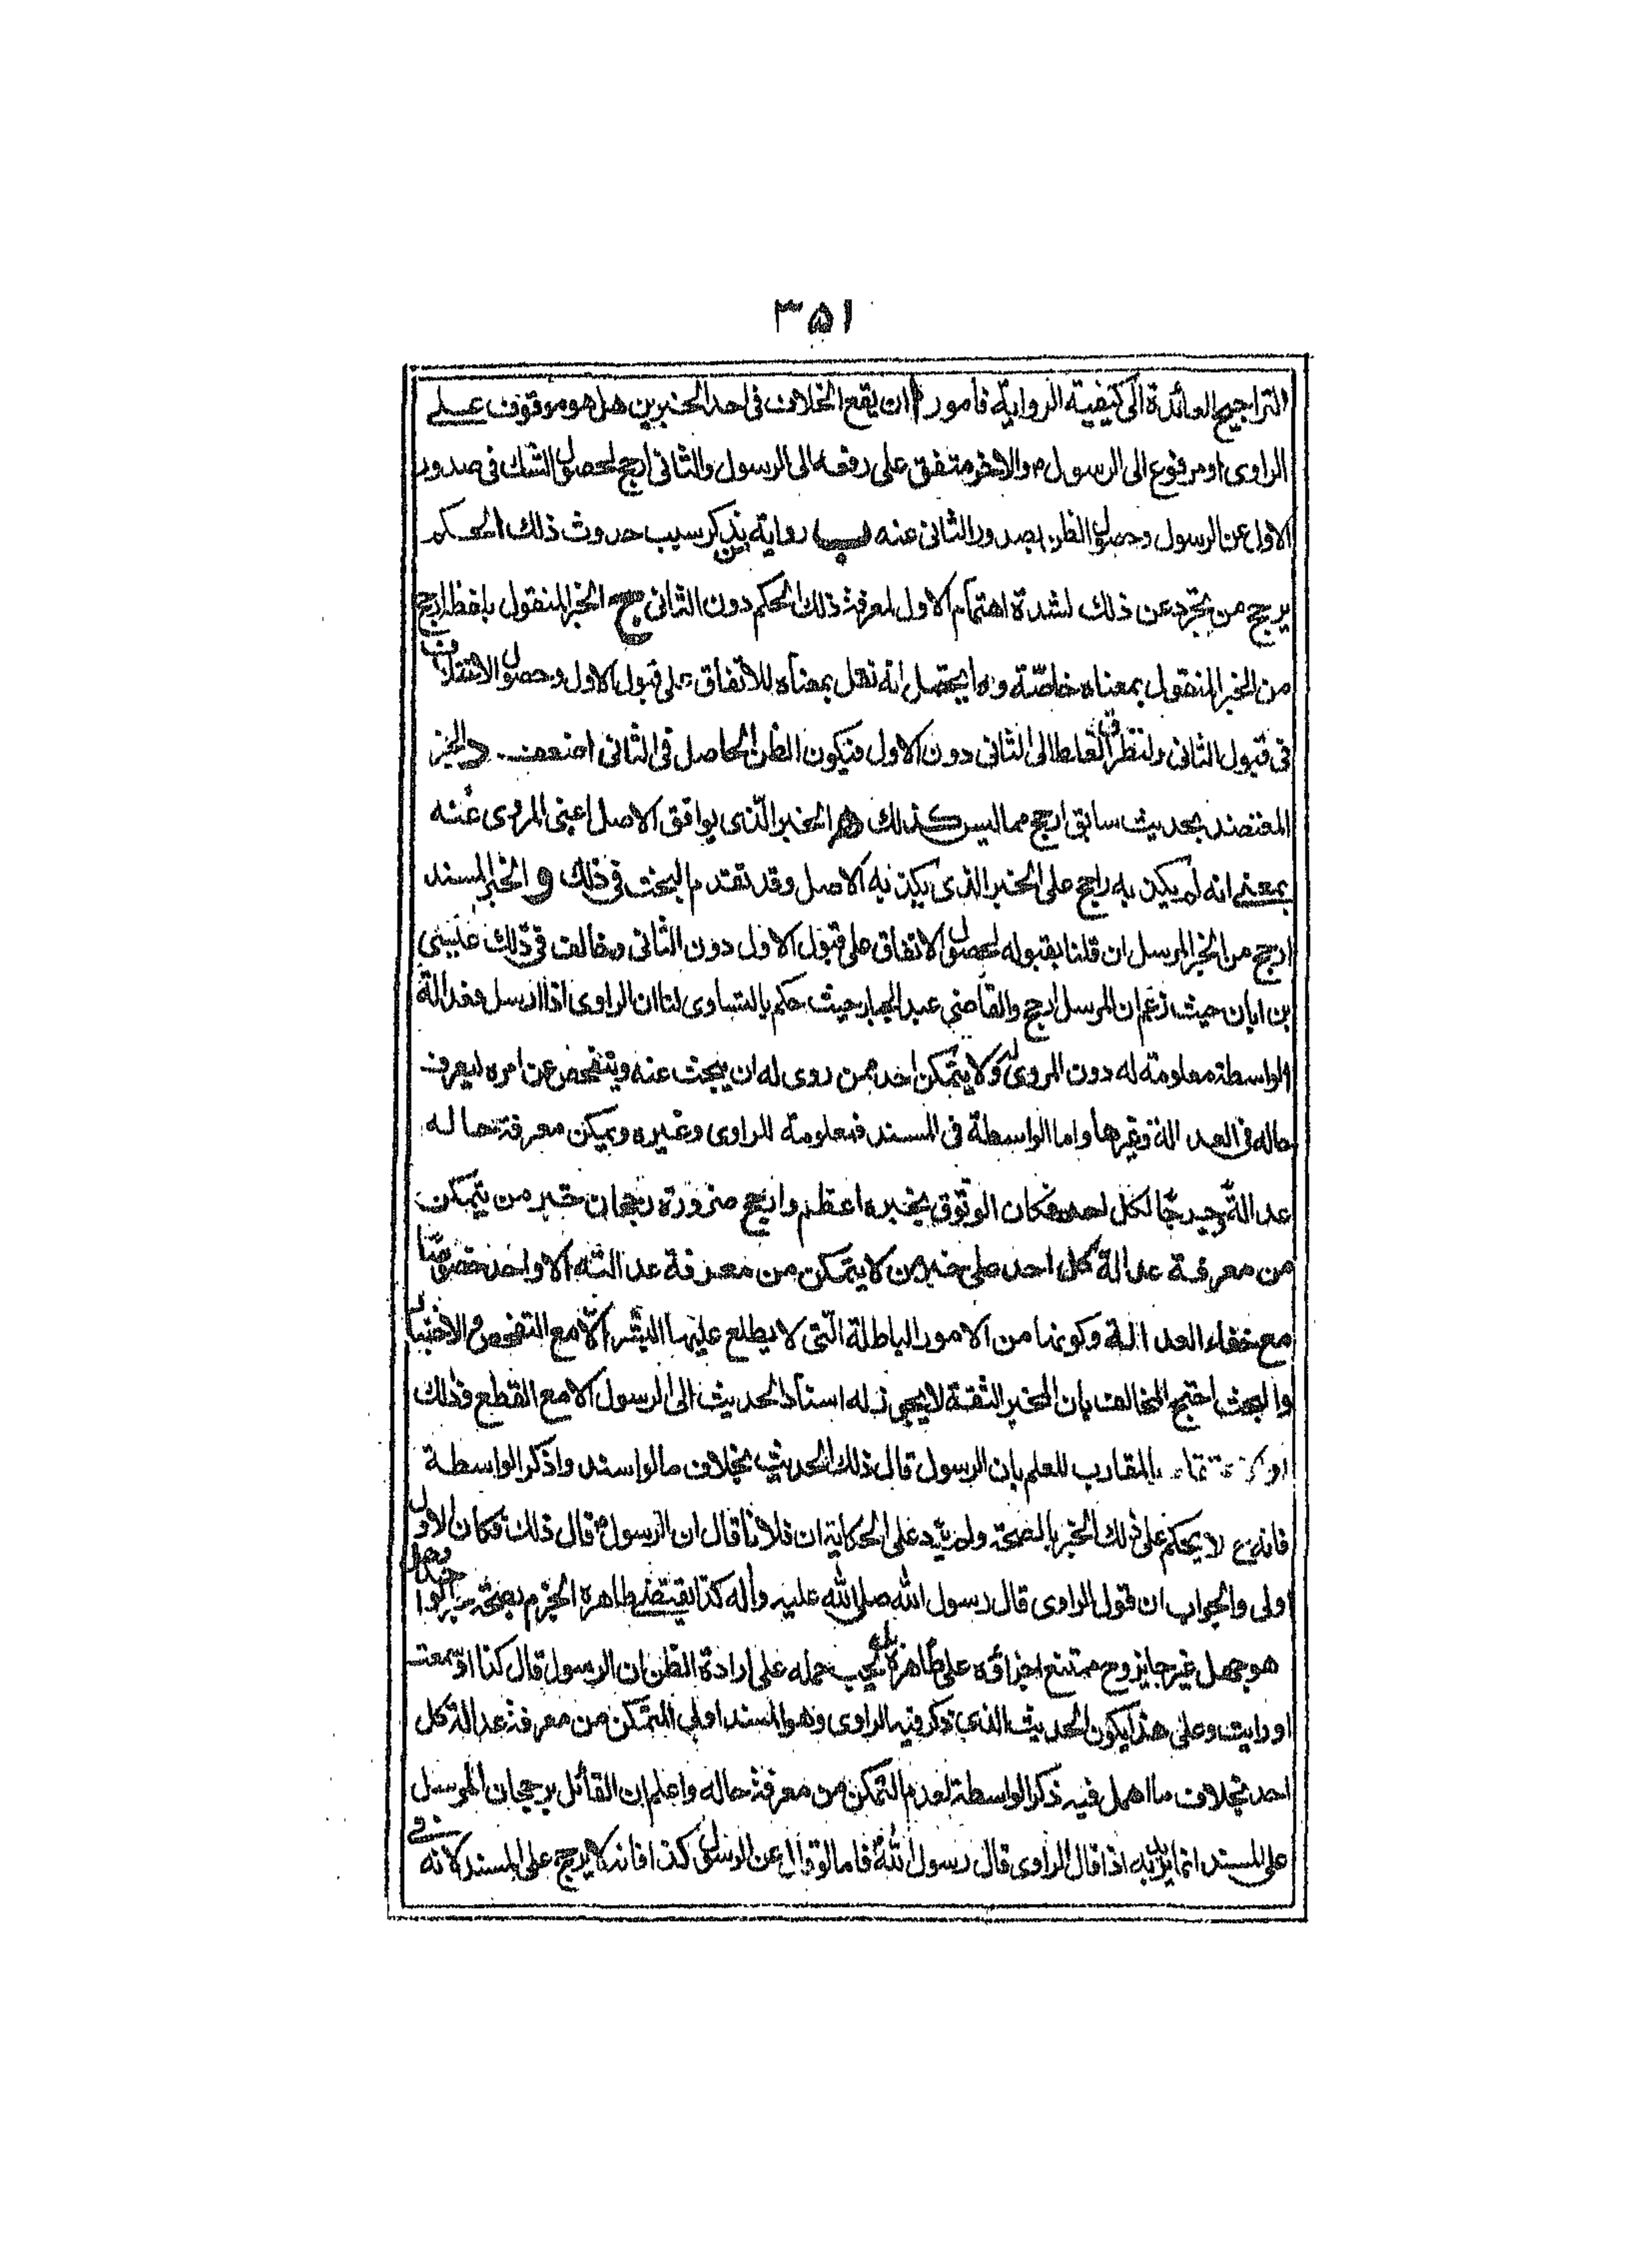 ۳۵۱
التراجيح العائدة الى كيفية الرواية فامور ا ان يقع الخلاف فى احد الخبرين هل هو موقوف على
الراوى او مرفوع الى الرسول م والاخر متفق على رفعه الى الرسول والثانى ارجح لحصول الشك فى صدور
الاول عن الرسول وحصول الظن بصدور الثانى عنه ب رواية من يذكر سبب حدوث ذلك الحكم
يرجح من تجرد عن ذلك لشدة اهتمام الاول لمعرفة ذلك الحكم دون الثانى ج الخبر المنقول بلفظه ارجح
من الخبر المنقول بمعناه خاصّة وما يحتمل انه نقل بمعناه للاتفاق على قبول الاول وحصول الاختلاف
فى قبول الثانى ولتطرق الغلط الى الثانى دون الاول فيكون الظن الحاصل فى الثانى اضعف د الخبر
المعتضد بحديث سابق ارجح مما ليس كذلك ه الخبر الّذى يوافق الاصل اعنى المروى عنه
بمعنى انه لم يكذبه راجح على الخبر الذى يكذبه الاصل وقد تقدم البحث فى ذلك و الخبر المسند
ارجح من الخبر المرسل ان قلنا بقبوله لحصول الاتفاق على قبول الاول دون الثانى وخالف فى ذلك عيسى
بن ابان حيث زعم ان المرسل ارجح والقاضى عبد الجبار حيث حكم بالتساوى لنا ان الراوى اذا ارسل فعدالة
الواسطة معلومة له دون المروى له ولا يتمكن احد ممن روى له ان يبحث عنه ويتفحص عن امره ليعرف
حاله فى العدالة وغيرها واما الواسطة فى المسند فمعلومة للراوى وغيره ويمكن معرفة حاله
عدالة وجرحًا لكل احد فكان الوثوق بخبره اعظم وارجح ضرورة رجحان خبر من يتمكن
من معرفة عدالة كل احد على خبر من لا يتمكن من معرفة عدالته الا واحد خصوصًا
مع خفاء العدالة وكونها من الامور الباطلة الّتى لا يطلع عليها البشر الّا مع التفحص والاختبار
والبحث احتج المخالف بان المخبر الثقة لا يجوز له اسناد الحديث الى الرسول الا مع القطع فى ذلك
او المقارب للعلم بان الرسول قال ذلك الحديث بخلاف ما لو اسند واذكر الواسطة
فانه لا يحكم على ذلك الخبر بالصحة ولم يزد على الحكاية ان فلانا قال ان الرسول ص قال ذلك فكان الاول
اولى والجواب ان قول الراوى قال رسول الله صلى الله عليه وآله كذا يقتضى ظاهره الجزم بصحة خبر الواحد
هو جهل غير جايز وح ممتنع اجراؤه على ظاهره بل يجب حمله على ارادة الظن ان الرسول قال كذا او سمعت
او رايت وعلى هذا يكون الحديث الذى ذكر فيه الراوى وهو المسند اولى للتمكن من معرفة عدالة كل
احد بخلاف ما اهمل فيه ذكر الواسطة لعدم التمكن من معرفة حاله واعلم ان القائل برجحان المرسل
على المسند انما اذا قال الراوى قال رسول الله فاما لو قال عن الرسول كذا فانه لا يرجح على المسند لانه فى